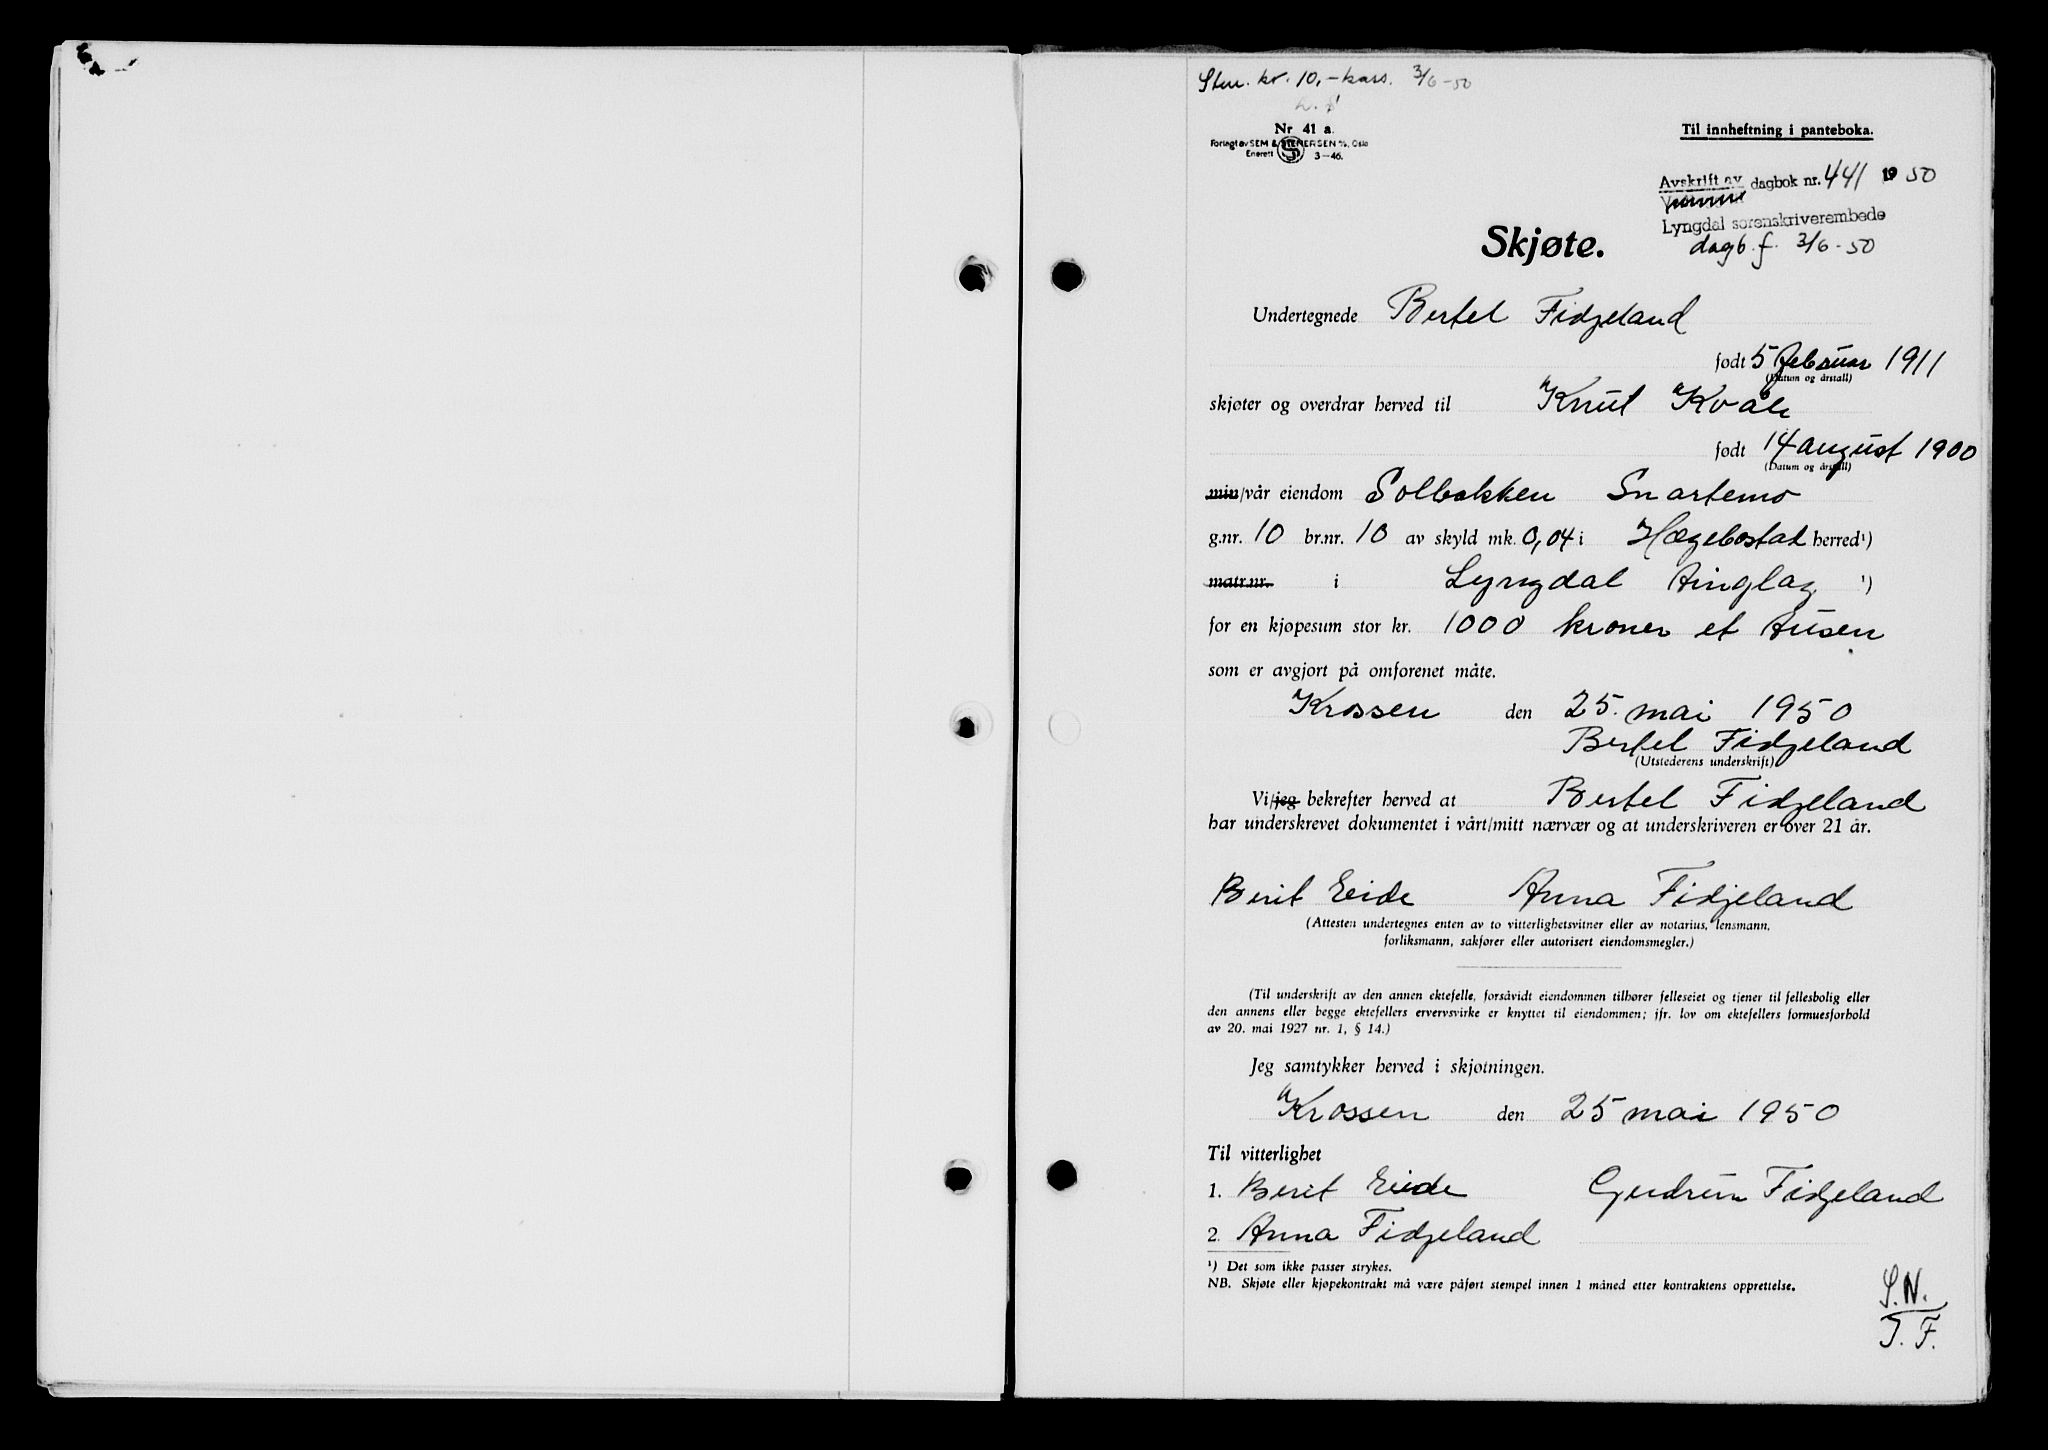 Stem. kr. 10,- kass. 3/6-50
Nr 41 a.
Forlagt av SEM & STENERSEN A/S, Oslo
Enerett 3—46.
Til innheftning i panteboka.
Avskrift av dagbok nr. 441 1950
Lyngdal sorenskriverembede
dagb. f. 3/6-50
Skjøte.
Undertegnede Bertel Fidjeland
født 5 februar 1911
(Datum og årstall)
skjøter og overdrar herved til Knut Kvåle
født 14 august 1900
(Datum og årstall)
min/vår eiendom Solbakken Snartemo
g.nr. 10 br.nr. 10 av skyld mk. 0,04 i Hægebostad herred¹)
matr.nr. i Lyngdal tinglag ¹)
for en kjøpesum stor kr. 1000 kroner et tusen
som er avgjort på omforenet måte.
Krossen den 25. mai 1950
Bertel Fidjeland
(Utstederens underskrift)
Vi/jeg bekrefter herved at Bertel Fidjeland
har underskrevet dokumentet i vårt/mitt nærvær og at underskriveren er over 21 år.
Berit Eide Anna Fidjeland
(Attesten undertegnes enten av to vitterlighetsvitner eller av notarius, lensmann,
forliksmann, sakfører eller autorisert eiendomsmegler.)
(Til underskrift av den annen ektefelle, forsåvidt eiendommen tilhører felleseiet og tjener til fellesbolig eller
den annens eller begge ektefellers ervervsvirke er knyttet til eiendommen; jfr. lov om ektefellers formuesforhold
av 20. mai 1927 nr. 1, § 14.)
Jeg samtykker herved i skjøtningen.
Krossen den 25 mai 1950
Til vitterlighet
1. Berit Eide Gudrun Fidjeland
2. Anna Fidjeland
¹) Det som ikke passer strykes.
NB. Skjøte eller kjøpekontrakt må være påført stempel innen 1 måned etter kontraktens opprettelse.
S.N.
J.F.